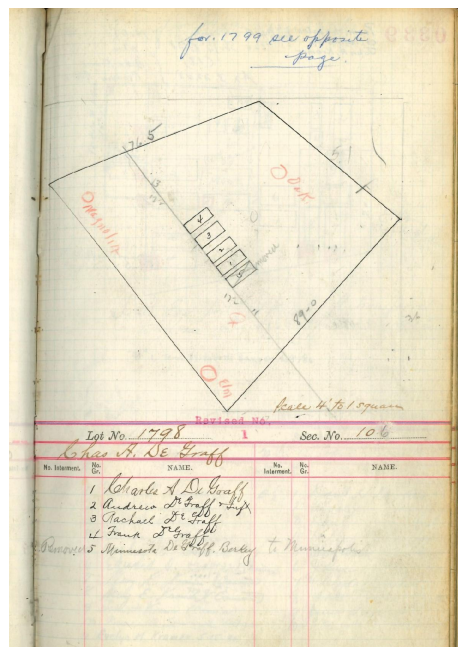 for. 1799 see opposite
page.
5.1
Oak
Magnolia
4
3
2
1
5
89-0
Elm
Scale 4' to 1 square
Revised No.
Lot No. 1798 1 Sec. No. 106
Chas A. De Graff
No. Interment. No. Gr. NAME. No. Interment. No. Gr. NAME.
1 Charles A De Graff
2 Andrew De Graff
3 Rachael De Graff
4 Frank De Graff
Removed 5 Minnesota De Graff to Minneapolis